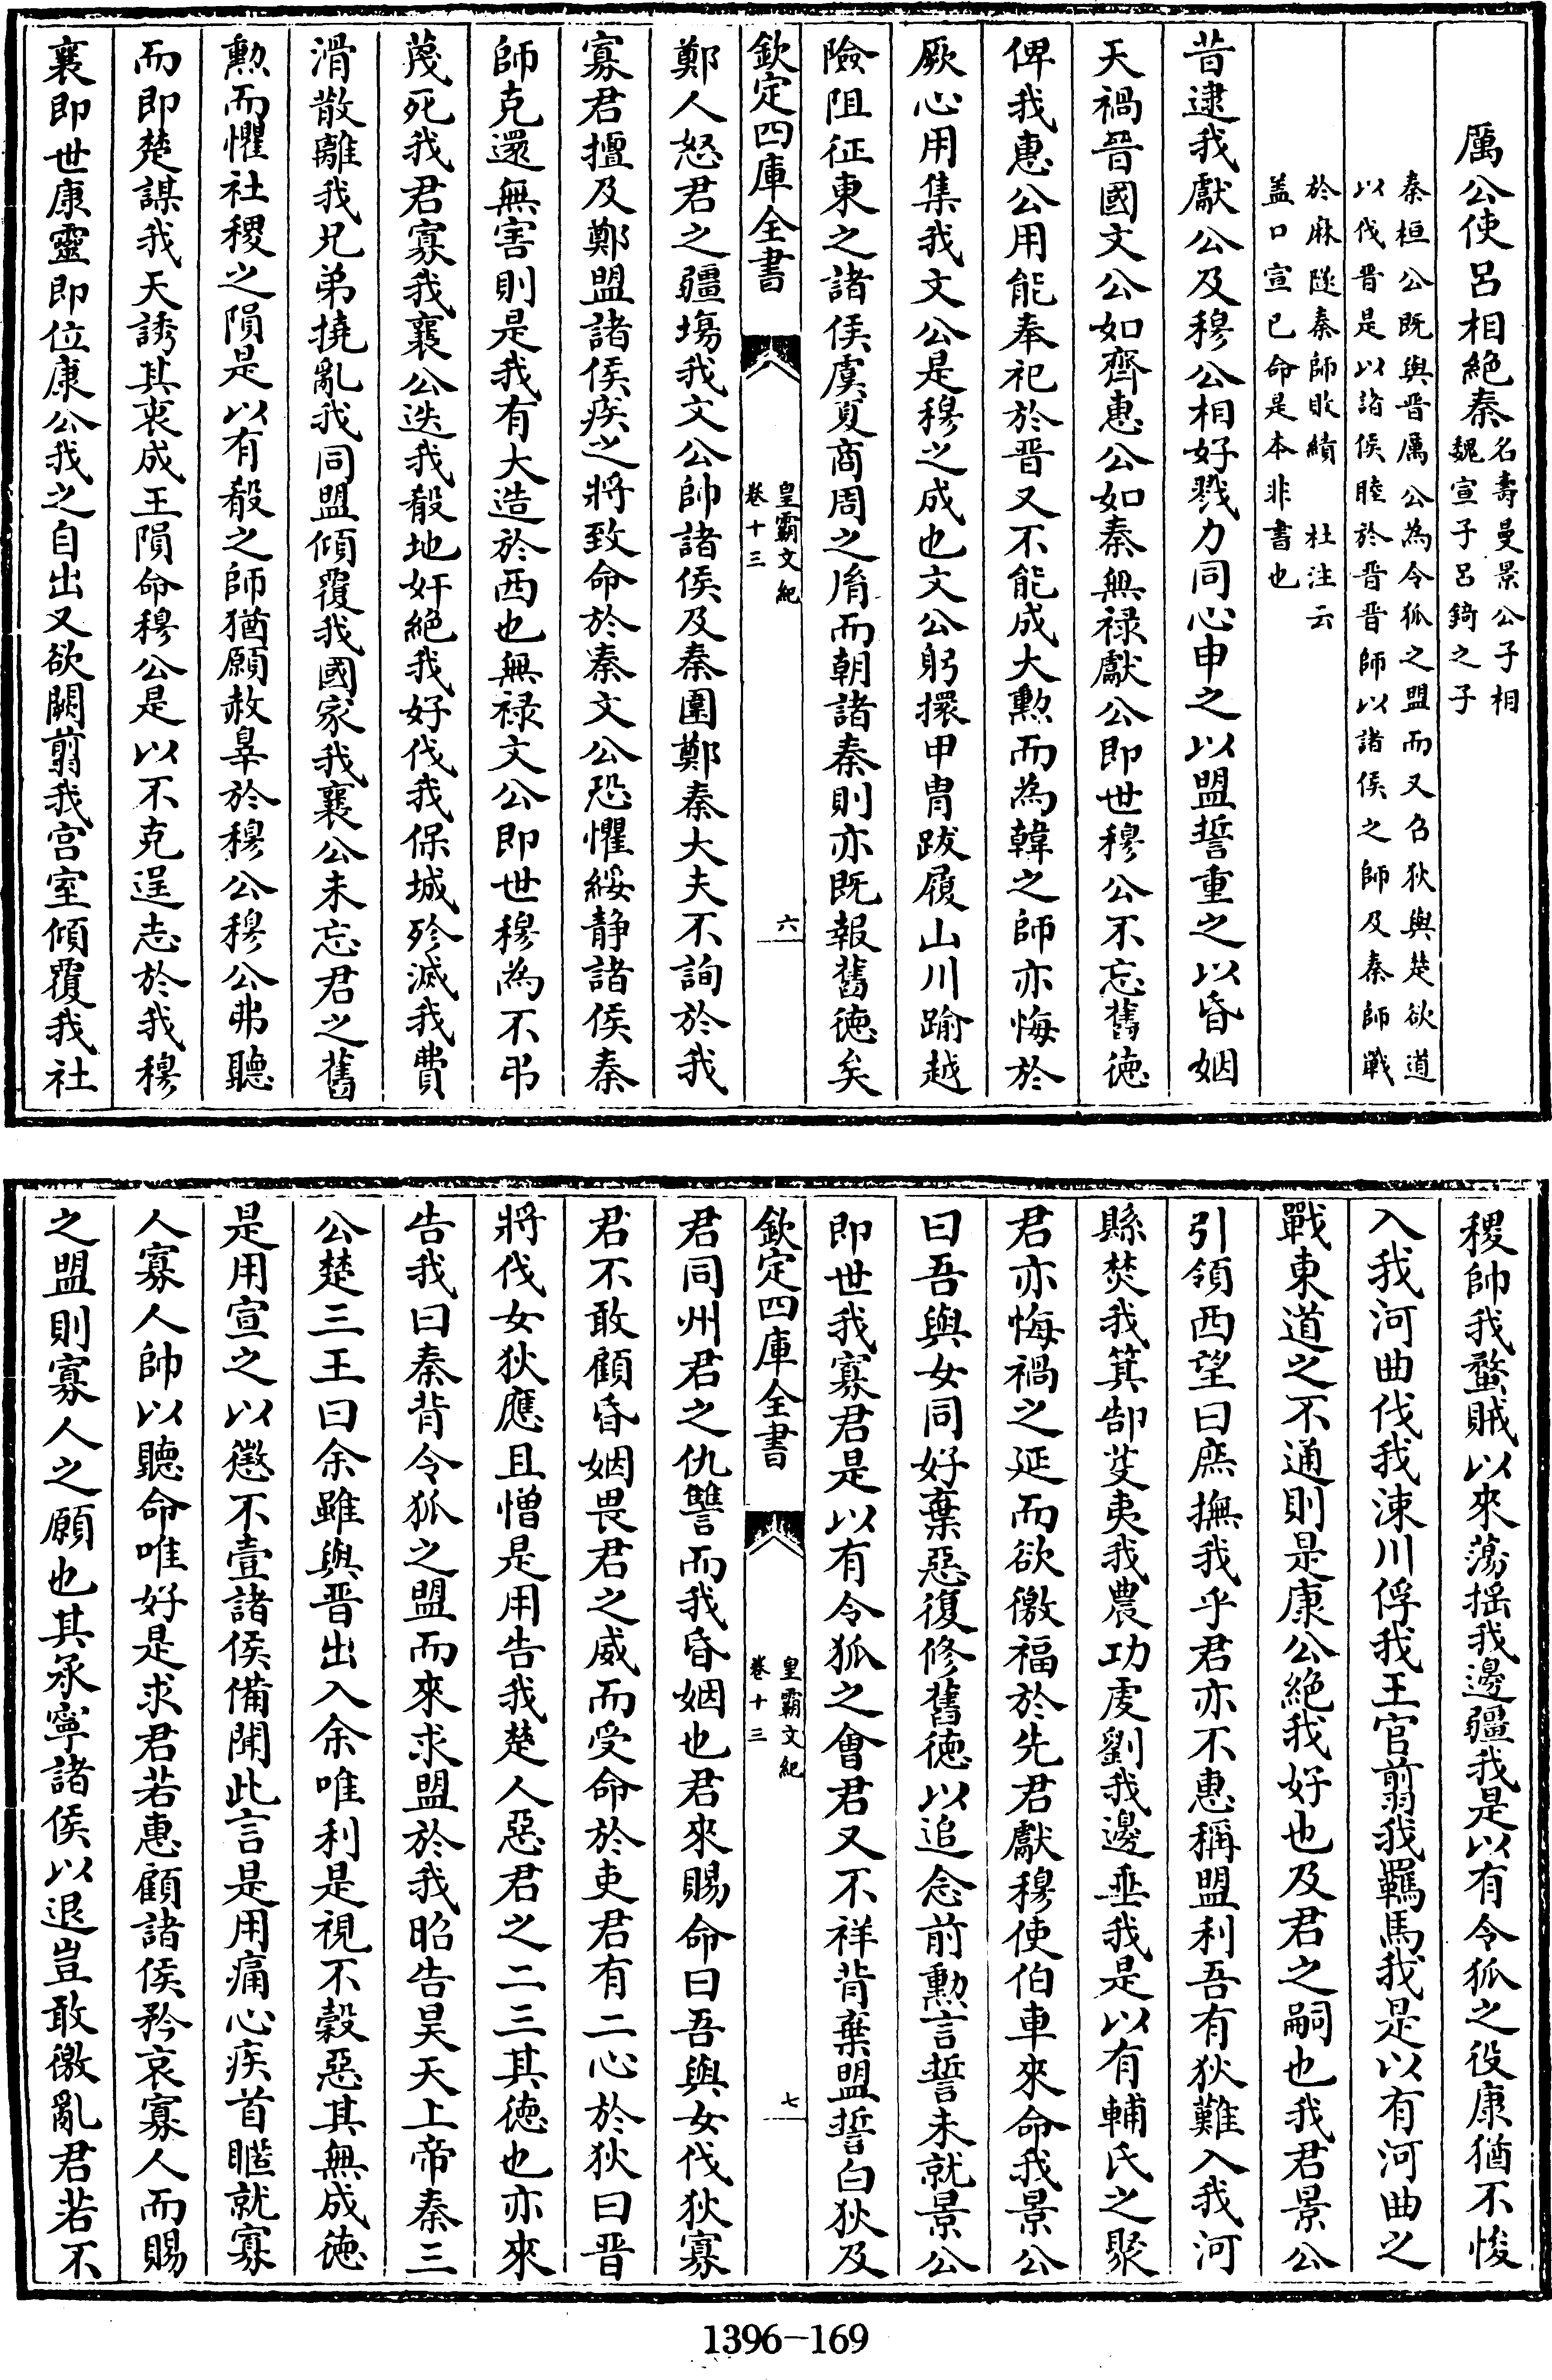 厲公使呂相絶秦名壽曼景公子相
魏宣子呂錡之子
秦桓公既與晉厲公為令狐之盟而又召狄與楚欲道
以伐晉是以諸侯睦於晉晉師以諸侯之師及秦師戰
於麻隧秦師敗績 杜注云
盖口宣己命是本非書也
昔逮我獻公及穆公相好戮力同心申之以盟誓重之以昏姻
天禍晉國文公如齊惠公如秦無禄獻公即世穆公不忘舊徳
俾我惠公用能奉祀於晉又不能成大勲而為韓之師亦悔於
厥心用集我文公是穆之成也文公躬擐甲胄跋履山川踰越
險阻征東之諸侯虞夏商周之胤而朝諸秦則亦既報舊徳矣
欽定四庫全書
皇霸文紀
卷十三
六
鄭人怒君之疆埸我文公帥諸侯及秦圍鄭秦大夫不詢於我
寡君擅及鄭盟諸侯疾之將致命於秦文公恐懼綏静諸侯秦
師克還無害則是我有大造於西也無禄文公即世穆為不弔
蔑死我君寡我襄公迭我殽地奸絶我好伐我保城殄滅我費
滑散離我兄弟撓亂我同盟傾覆我國家我襄公未忘君之舊
勲而懼社稷之隕是以有殽之師猶願赦辠於穆公穆公弗聽
而即楚謀我天誘其衷成王隕命穆公是以不克逞志於我穆
襄即世康靈即位康公我之自出又欲闕翦我宫室傾覆我社
稷帥我蝥賊以來蕩揺我邊疆我是以有令狐之役康猶不悛
入我河曲伐我涑川俘我王官翦我羈馬我是以有河曲之
戰東道之不通則是康公絶我好也及君之嗣也我君景公
引領西望曰庶撫我乎君亦不惠稱盟利吾有狄難入我河
縣焚我箕郜芟夷我農功虔劉我邊垂我是以有輔氏之聚
君亦悔禍之延而欲徼福於先君獻穆使伯車來命我景公
曰吾與女同好棄惡復修舊徳以追念前勲言誓未就景公
即世我寡君是以有令狐之會君又不祥背棄盟誓白狄及
欽定四庫全書
皇霸文紀
卷十三
七
君同州君之仇讐而我昏姻也君來賜命曰吾與女伐狄寡
君不敢顧昏姻畏君之威而受命於吏君有二心於狄曰晉
將伐女狄應且憎是用告我楚人惡君之二三其徳也亦來
告我曰秦背令狐之盟而來求盟於我昭告昊天上帝秦三
公楚三王曰余雖與晉出入余唯利是視不穀惡其無成徳
是用宣之以懲不壹諸侯備聞此言是用痛心疾首暱就寡
人寡人帥以聽命唯好是求君若惠顧諸侯矜哀寡人而賜
之盟則寡人之願也其承寧諸侯以退豈敢徼亂君若不
1396-169